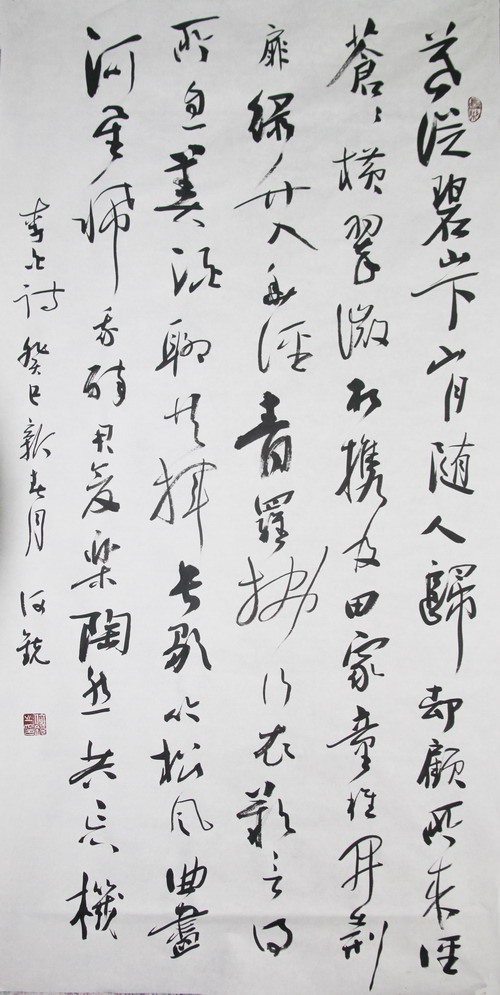 暮從碧山下山月随人歸却顧所来徑
蒼蒼横翠微相携及田家童稚開荊
扉緑竹入幽徑青羅拂行衣歡言得
所息美酒聊共揮長歌吟松風曲盡
河星稀我醉君复樂陶然共忘機
李白詩癸巳新春月